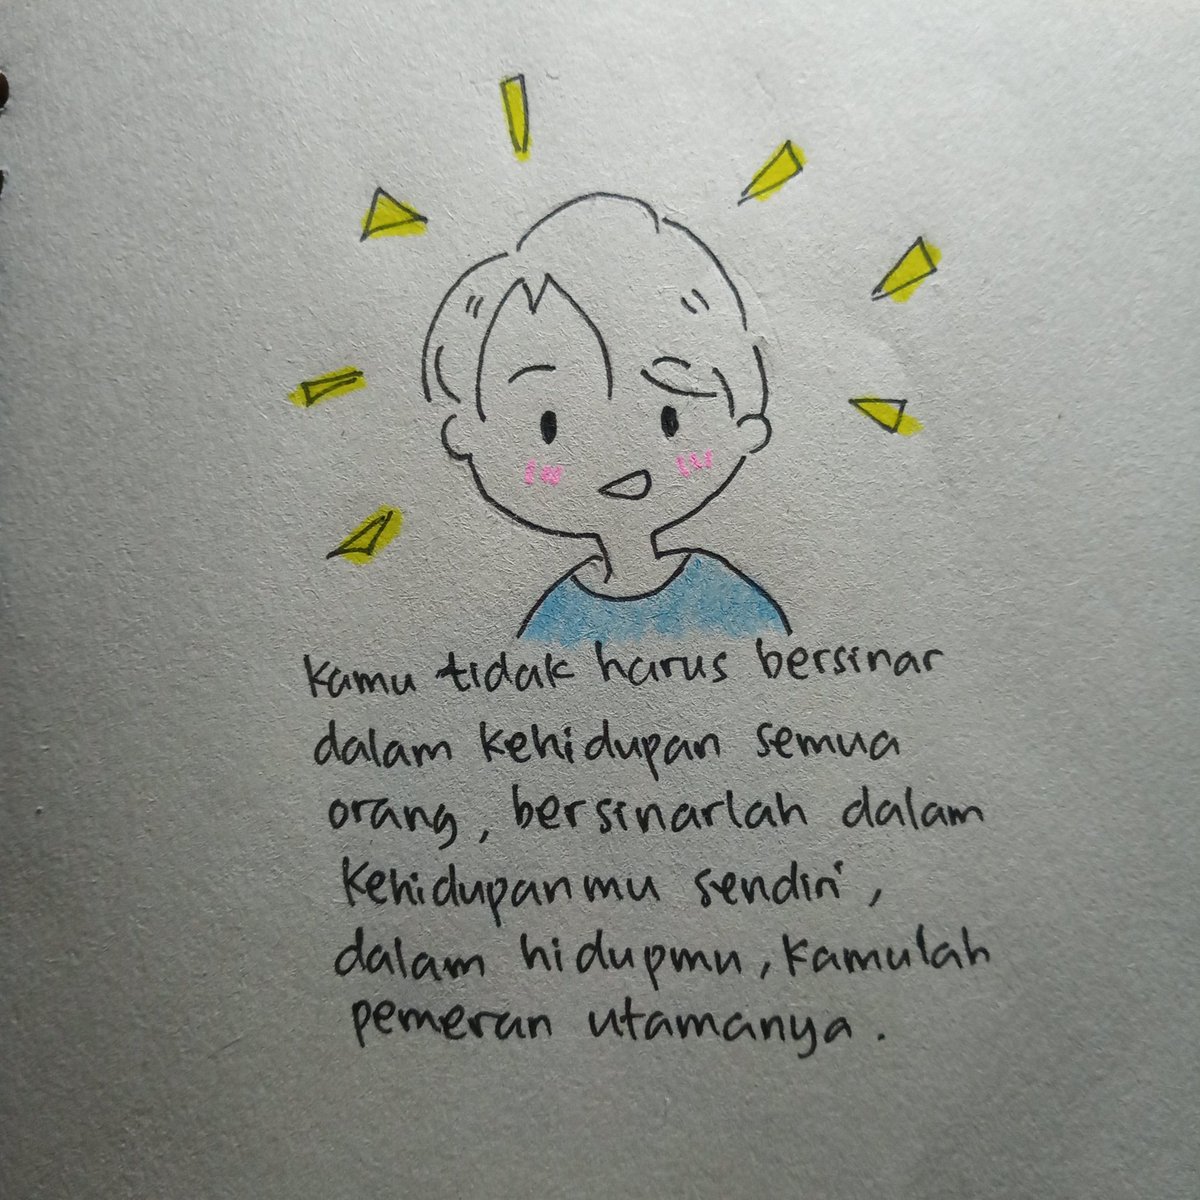 kamu tidak harus bersinar
dalam kehidupan semua
orang, bersinarlah dalam
kehidupanmu sendiri,
dalam hidupmu, kamulah
pemeran utamanya.